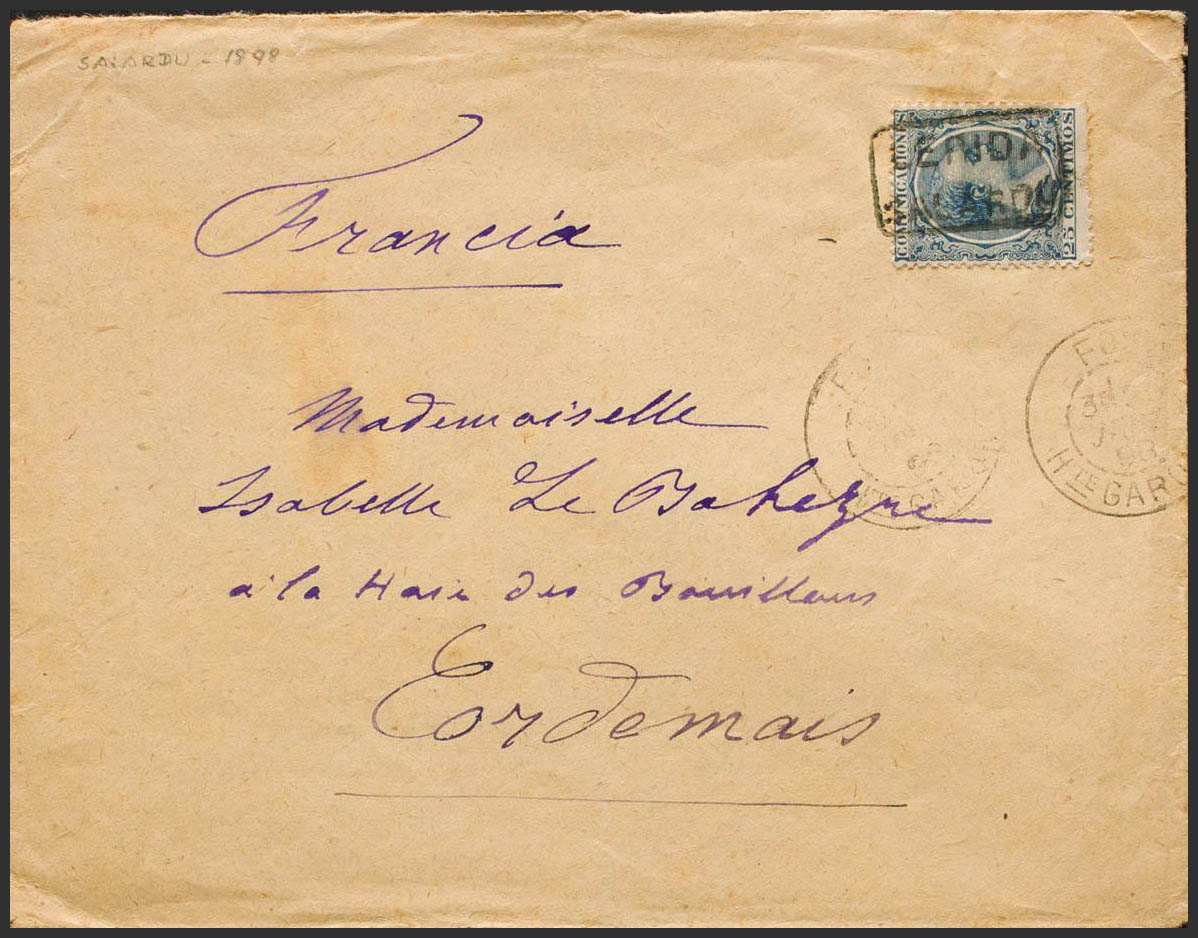 SAIARDU - 1898
COMUNICACIONES
25 CENTIMOS
Francia
Mademoiselle
Isabelle Le Bahezre
à la Haie des Bouillons
Cordemais
Hte GAR
Hte GAR